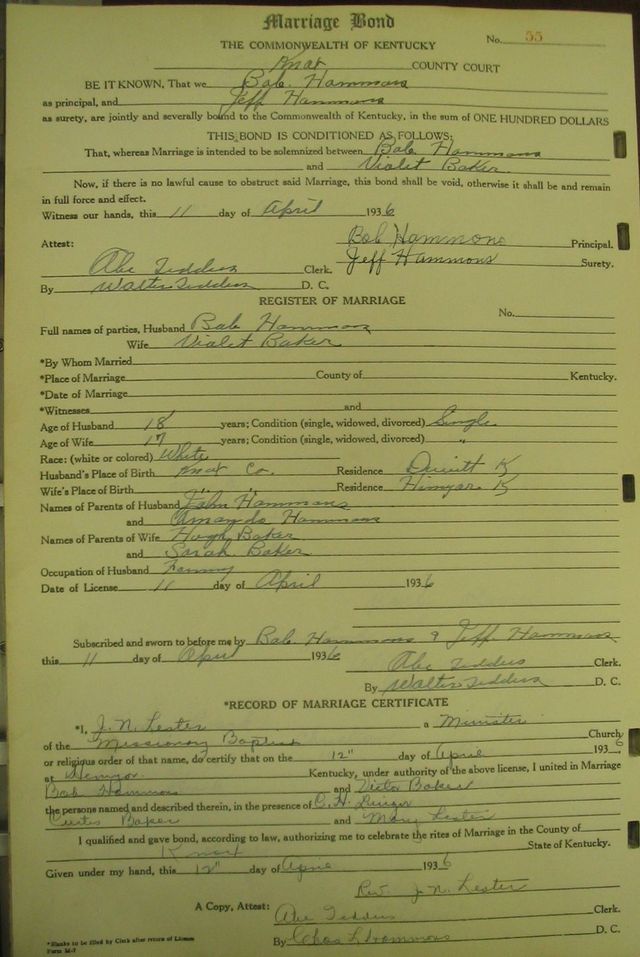 Marriage Bond
No. 55
THE COMMONWEALTH OF KENTUCKY
Knox COUNTY COURT
BE IT KNOWN, That we Bob Hammons
as principal, and Jeff Hammons
as surety, are jointly and severally bound to the Commonwealth of Kentucky, in the sum of ONE HUNDRED DOLLARS
THIS BOND IS CONDITIONED AS FOLLOWS:
That, whereas Marriage is intended to be solemnized between Bob Hammons
and Violet Baker
Now, if there is no lawful cause to obstruct said Marriage, this bond shall be void, otherwise it shall be and remain
in full force and effect.
Witness our hands, this 11 day of April 1936
Attest: Bob Hammons Principal.
Abe Tedders Clerk. Jeff Hammons Surety.
By Walter Tedders D. C.
REGISTER OF MARRIAGE
No.
Full names of parties, Husband Bob Hammons
Wife Violet Baker
*By Whom Married
*Place of Marriage County of Kentucky.
*Date of Marriage
*Witnesses and
Age of Husband 18 years; Condition (single, widowed, divorced) Single
Age of Wife 17 years; Condition (single, widowed, divorced) "
Race: (white or colored) White
Husband's Place of Birth Knox Co. Residence Ky
Wife's Place of Birth " " Residence Himyar Ky
Names of Parents of Husband John Hammons
and Amanda Hammons
Names of Parents of Wife Hugh Baker
and Sarah Baker
Occupation of Husband
Date of License 11 day of April 1936
Subscribed and sworn to before me by Bob Hammons & Jeff Hammons
this 11 day of April 1936 Abe Tedders Clerk.
By Walter Tedders D. C.
*RECORD OF MARRIAGE CERTIFICATE
*I, J. N. Lester a Minister
of the Missionary Baptist Church
or religious order of that name, do certify that on the 12" day of April 1936
at Himyar Kentucky, under authority of the above license, I united in Marriage
Bob Hammons and Baker
the persons named and described therein, in the presence of
Curtis Baker and Mary Lester
I qualified and gave bond, according to law, authorizing me to celebrate the rites of Marriage in the County of
Knox State of Kentucky.
Given under my hand, this 12" day of April 1936
Rev. J. N. Lester
A Copy, Attest: Abe Tedders Clerk.
By Chas L Hammons D. C.
*Blanks to be filled by Clerk after return of License
Form M-7